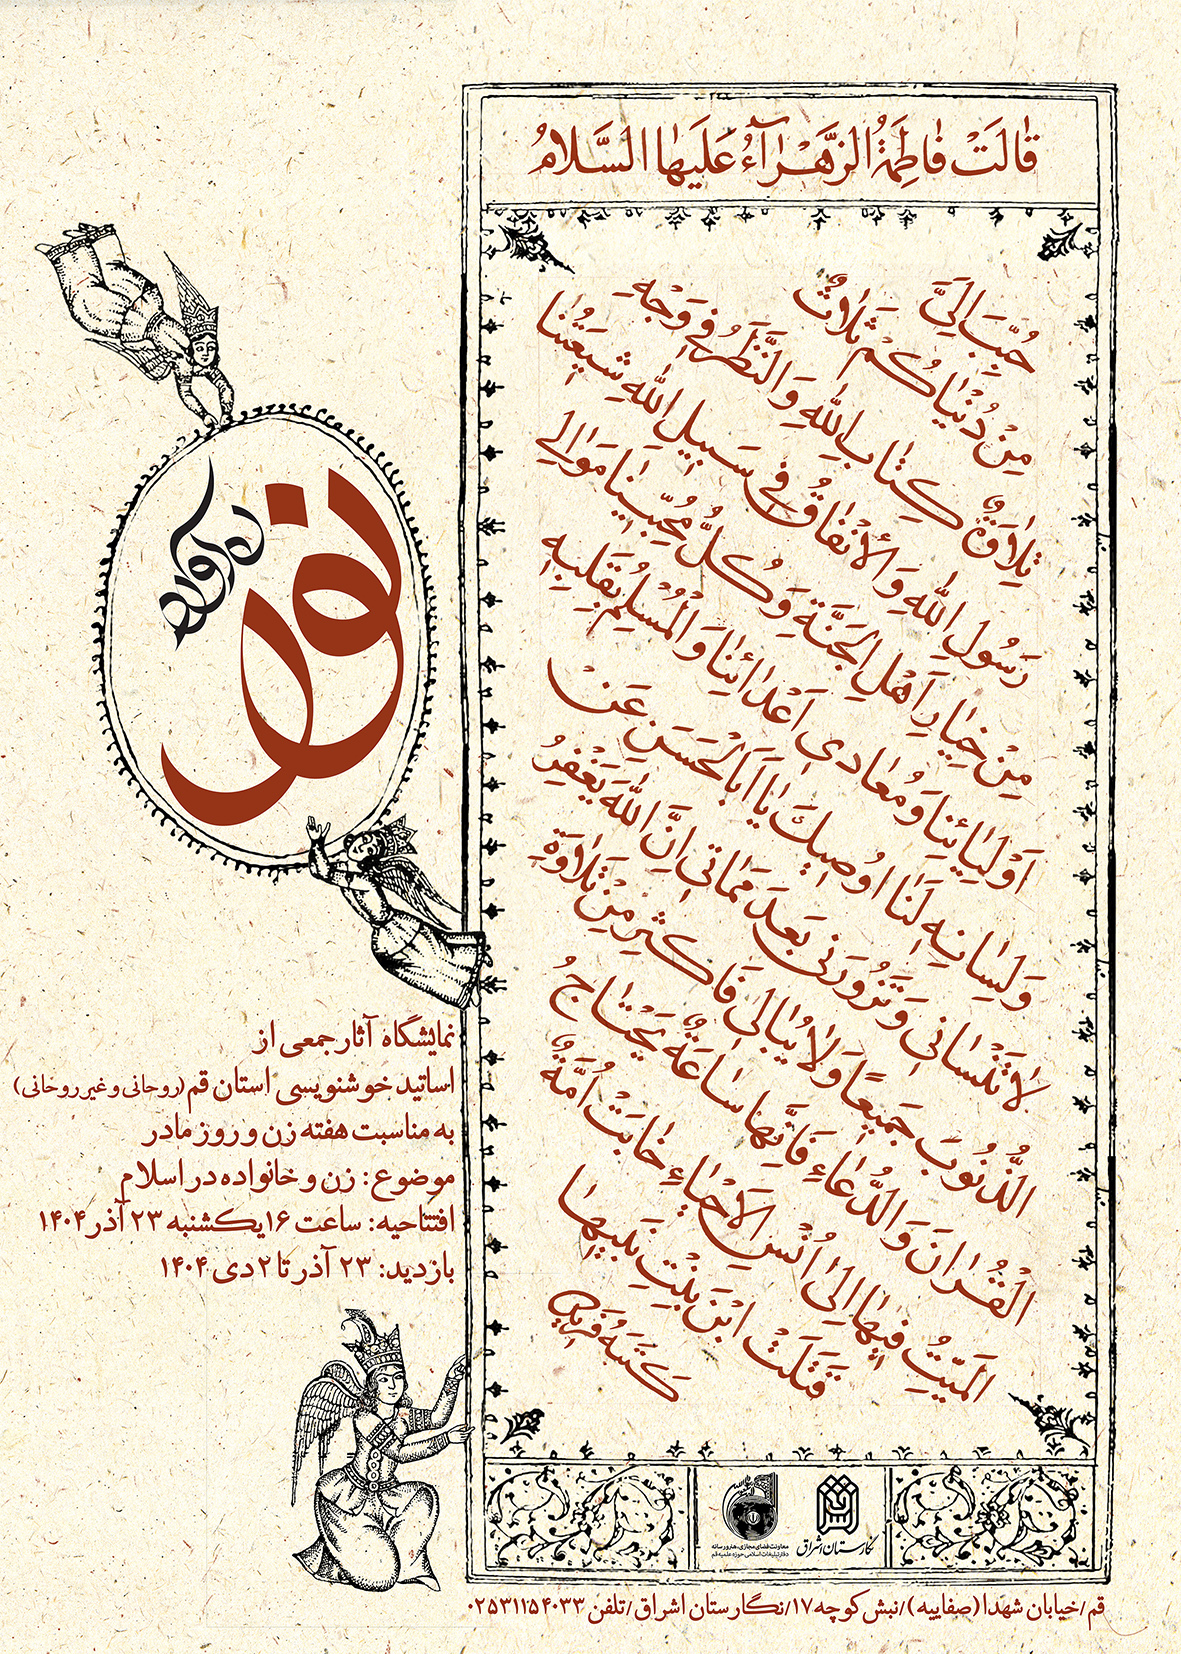 قٰالَتْ فٰاطِمَةُ الزَّهْرٰآءُ عَلَیهٰا السَّلامُ
حُبِّبَ اِلَیَّ
مِنْ دُنْیٰاکُمْ ثَلٰاثٌ
تِلٰاوَةُ کِتٰابِ اللهِ وَ النَّظَرُ فی وَجْهِ
رَسُولِ اللهِ وَ الْاِنْفٰاقُ فی سَبیلِ اللهِ شیعَتُنٰا
مِنْ خِیٰارِ اَهْلِ الْجَنَّةِ وَ کُلُّ مُحِبّینٰا مَوٰالی
اَوْلِیٰائِنٰا وَ مُعٰادی اَعْدٰائِنٰا وَ الْمُسْلِمُ بِقَلْبِهِ
وَ لِسٰانِهِ لَنٰا اوُصیکَ یٰا اَبَا الْحَسَنِ اَنْ
لٰا تَنْسٰانی وَ تَزُورَنی بَعْدَ مَمٰاتی اِنَّ اللهَ یَغْفِرُ
الذُّنُوبَ جَمیعًا وَ لٰا یُبٰالی فَاَکْثِرْ مِنْ تِلٰاوَةِ
الْقُرْاٰنِ وَ الدُّعٰاءِ فَاِنَّهٰا سٰاعَةٌ یَحْتٰاجُ
الْمَیِّتُ فیهٰا اِلیٰ اُنْسِ الْاَحْیٰاءِ خٰابَتْ اُمَّةٌ
قَتَلَتْ ابْنَ بِنْتِ نَبِیِّهٰا
نمایشگاه آثار جمعی از
اساتید خوشنویسی استان قم (روحانی و غیر روحانی)
به مناسبت هفته زن و روز مادر
موضوع: زن و خانواده در اسلام
افتتاحیه: ساعت ۱۶ یکشنبه ۲۳ آذر ۱۴۰۴
بازدید: ۲۳ آذر تا ۲ دی ۱۴۰۴
نگارستان اشراق
معاونت فضای مجازی، هنر و رسانه
دفتر تبلیغات اسلامی حوزه علمیه قم
قم/خیابان شهدا (صفاییه)/نبش کوچه ۱۷/نگارستان اشراق/تلفن ۰۲۵۳۱۱۵۴۰۳۳